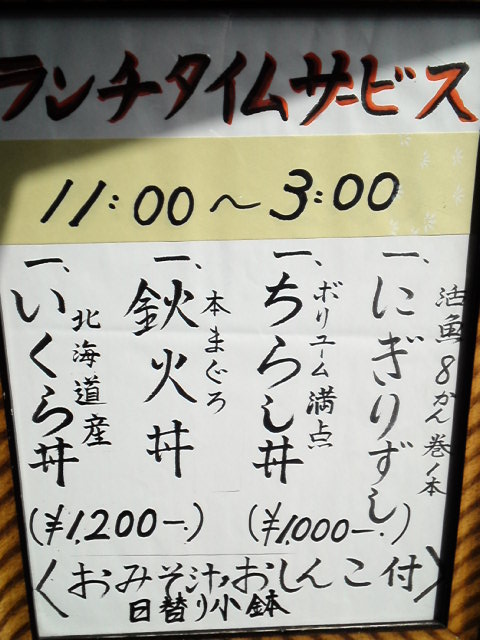 ランチタイムサービス
11:00～3:00
一、にぎりずし
活魚8かん巻1本
一、ちらし丼
ボリューム満点
(¥1,000-.)
一、鉄火丼
本まぐろ
一、いくら丼
北海道産
(¥1,200-.)
〈おみそ汁,おしんこ付〉
日替り小鉢